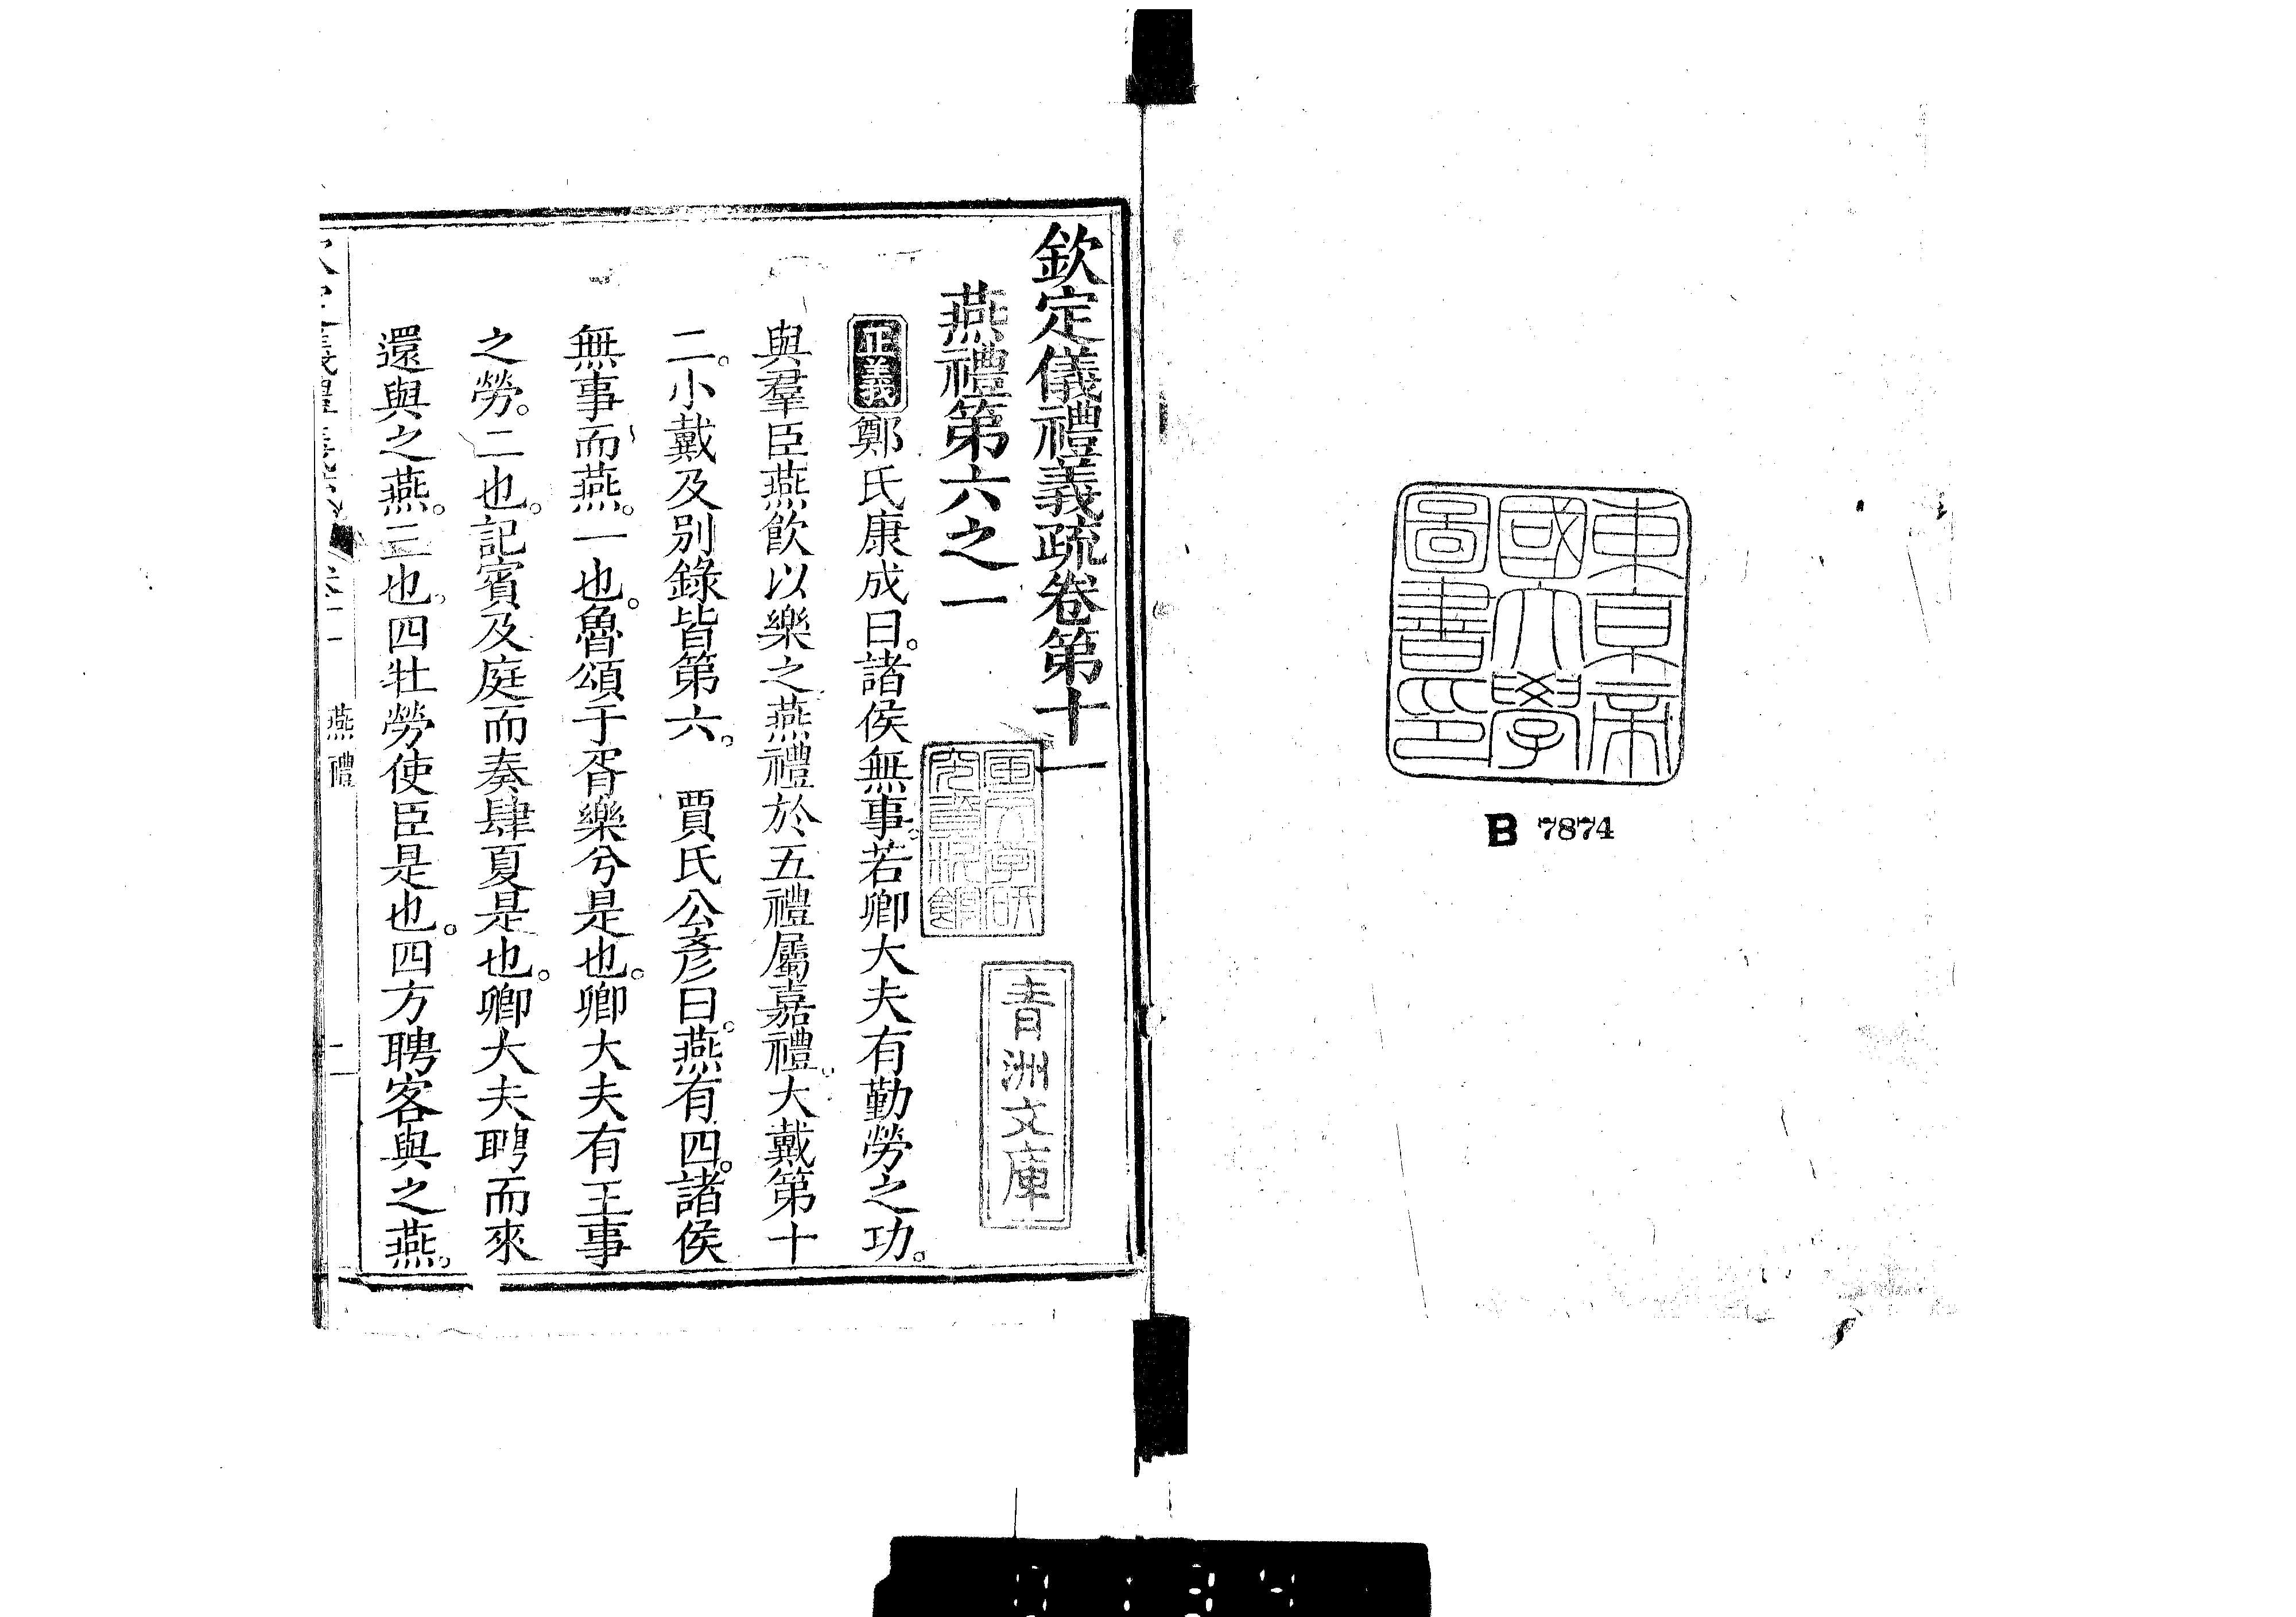 東京帝
國大學
圖書印
B 7874
欽定儀禮義疏卷第十一
燕禮第六之一
青洲文庫
正義鄭氏康成曰。諸侯無事。若卿大夫有勤勞之功。
與羣臣燕飮以樂之燕禮於五禮屬嘉禮。大戴第十
二。小戴及別錄皆第六。 賈氏公彥曰。燕有四。諸侯
無事而燕。一也。魯頌于胥樂兮是也。卿大夫有王事
之勞。二也。記賓及庭而奏肆夏是也。卿大夫聘而來
還與之燕。三也。四牡勞使臣是也。四方聘客與之燕。
燕禮